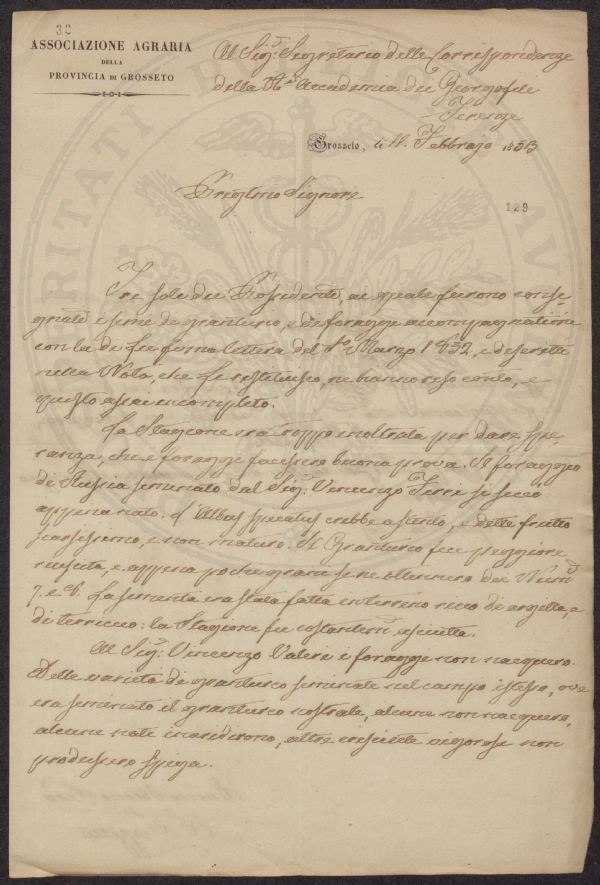 32
ASSOCIAZIONE AGRARIA
DELLA
PROVINCIA DI GROSSETO
Al Sig.r Segretario delle Corrispondenze
della R.e Accademia dei Georgofili
Firenze
Grosseto, li 11. Febbrajo 1853
Pregmo Signore
129
Tre soli dei Possidenti, ai quali furono conse-
gnati i semi di granturco, e di foragge accompagnatimi
con la di Lei firma lettera del 1º Marzo 1852, e descritti
nella Nota, che Le restituisco, ne hanno reso conto, e
questo assai incompleto.
La Stagione era troppo inoltrata per dare spe-
ranza, che i foragge facessero buona prova. Il foraggio
di Russia seminato dal Sig.r Vincenzo Ferri si seccò
appena nato. L'Albus crebbe a stento, e dette frutto
scarsissimo, e non maturo. Il Granturco fece peggiore
riuscita, e appena poche grane se ne ottennero dai Num.i
7. e 8. La sementa era stata fatta in terreno ricco di argilla, e
di terriccio: la Stagione fu costantem.e asciutta.
Al Sig.r Vincenzo Valeri i foragge non nacquero.
Delle varietà di granturco seminate nel campo istesso, ove
era seminato il granturco nostrale, alcune non nacquero,
alcune nate inaridirono, altre cresciute vigorose non
produssero spiga.